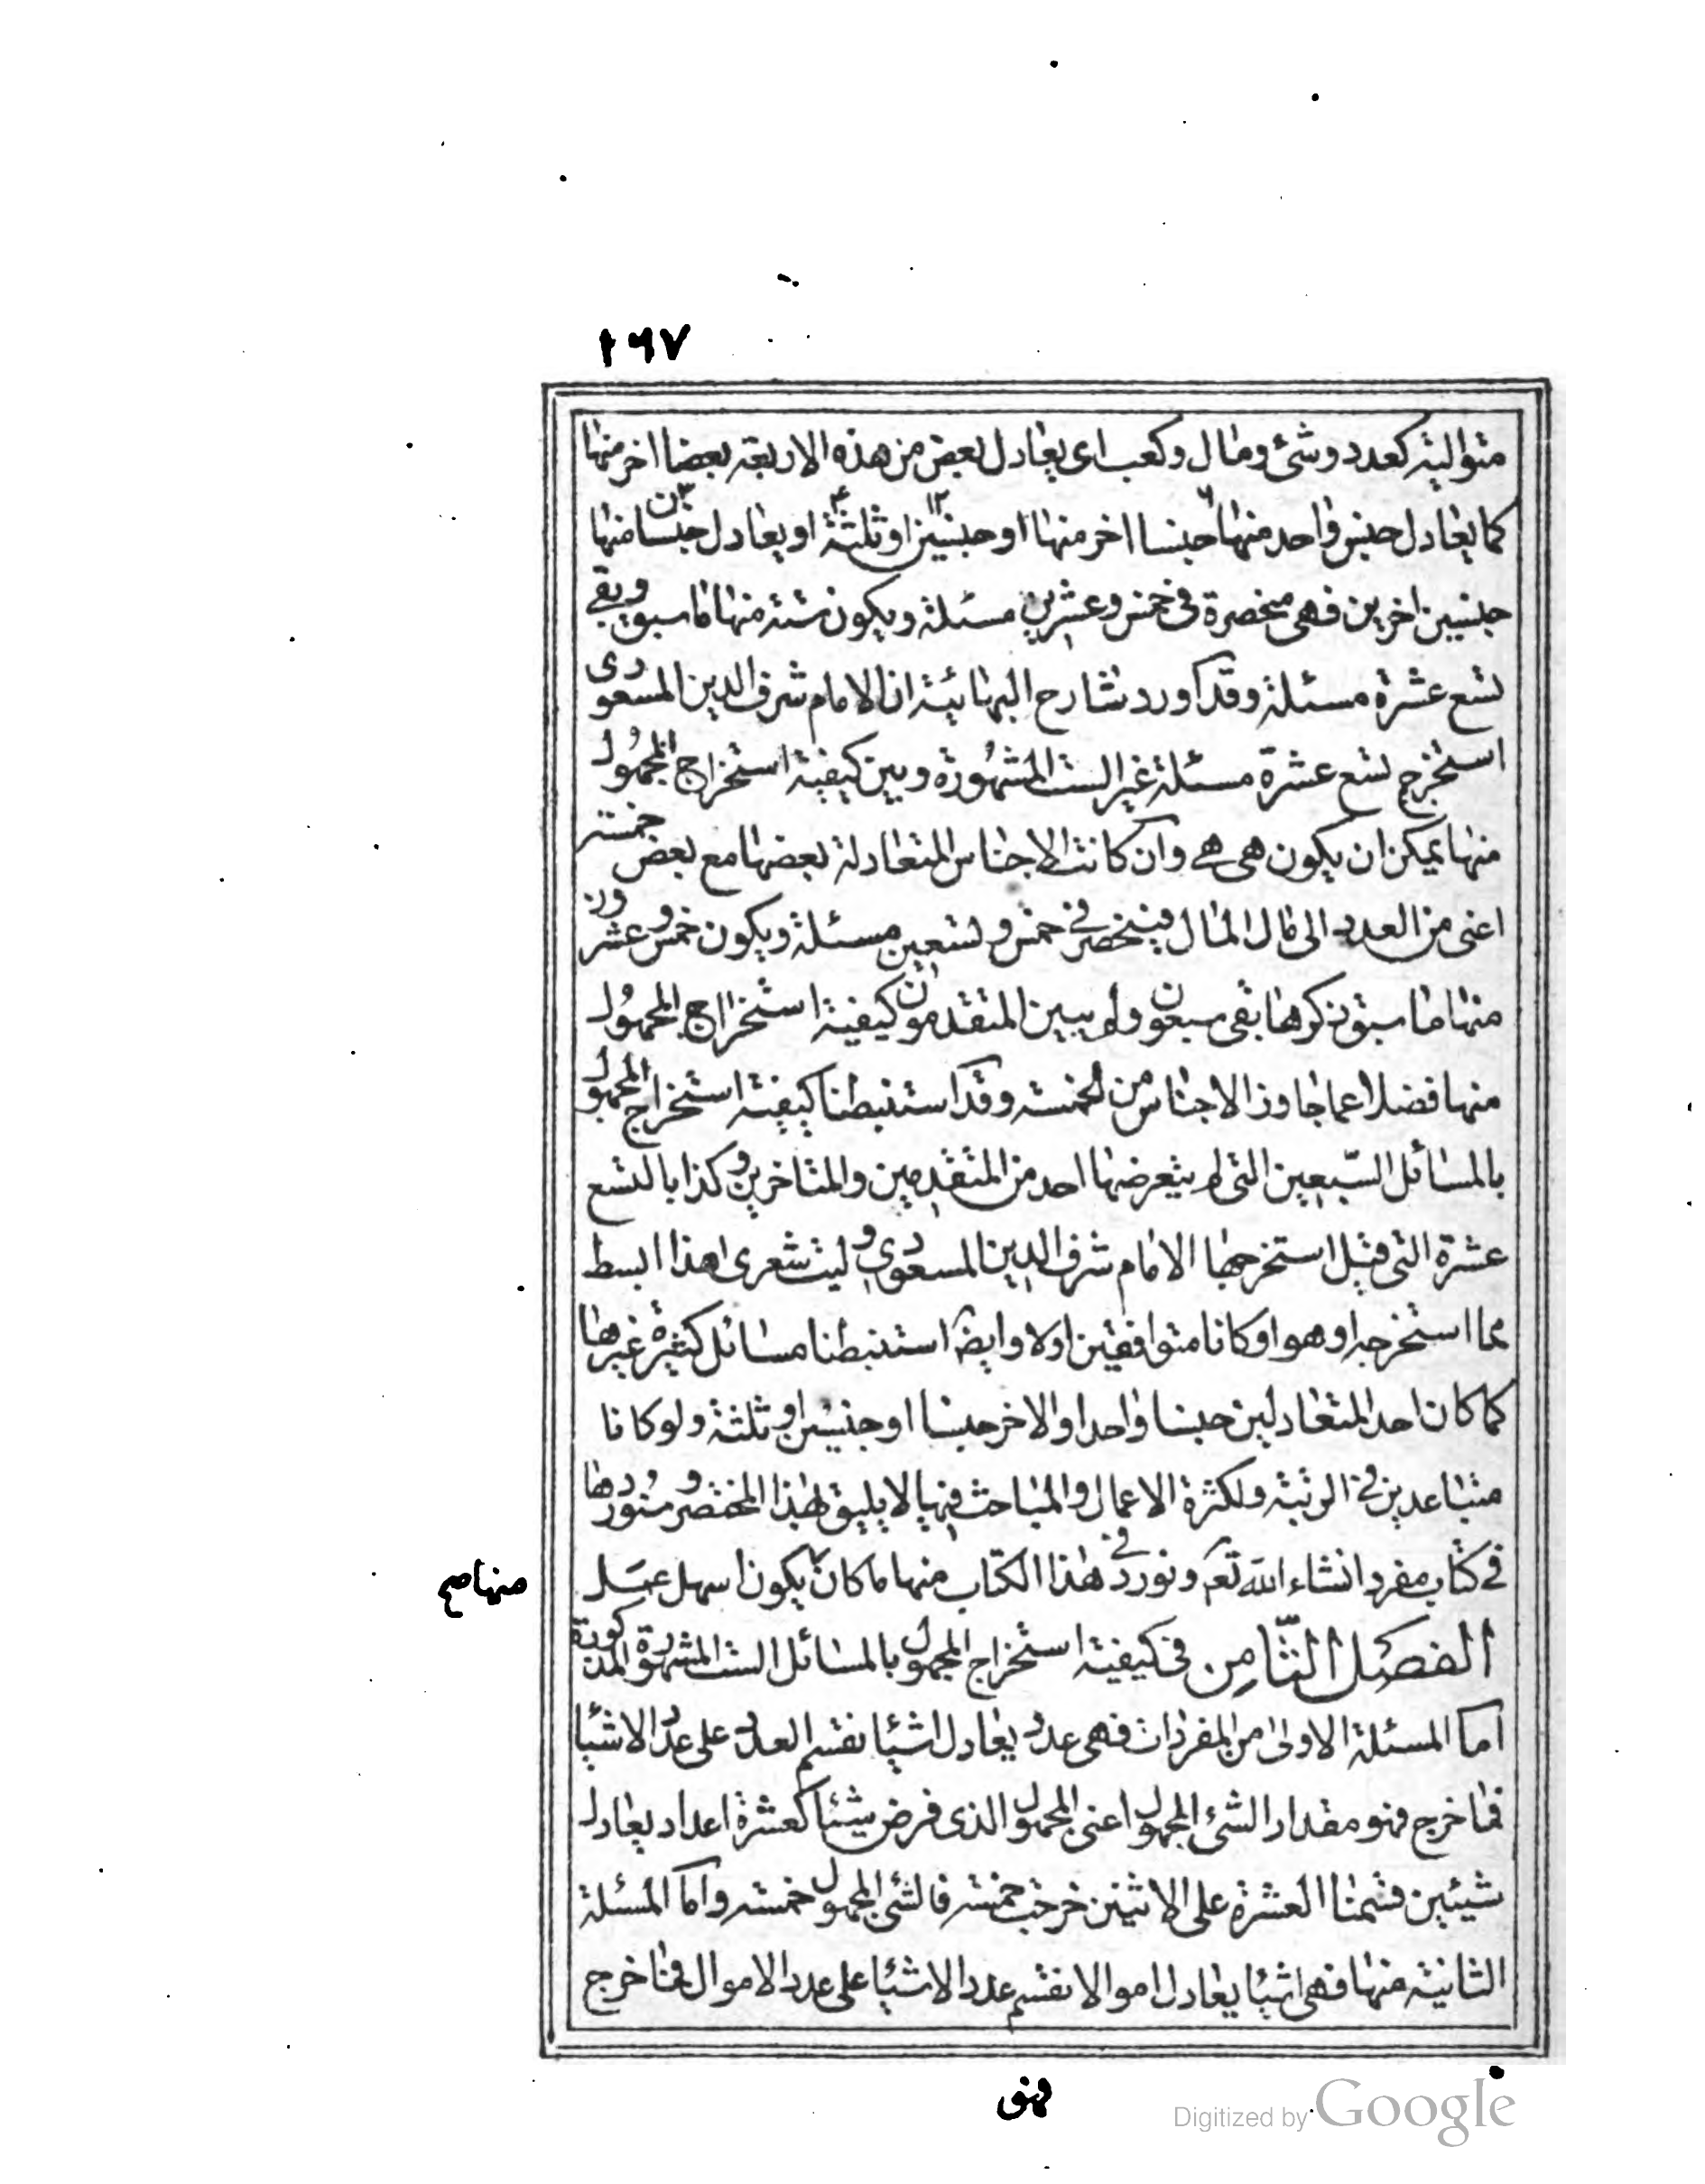 ۲۶۷
متوالية كعدد وشئ ومال وكعب اى يعادل بعض من هذه الاربعة بعضا اخر منها
كما يعادل جنس واحد منها جنسا اخر منها او جنسين او ثلثة او يعادل جنسان منها
جنسين اخرين فهى منحصرة فى خمس وعشرين مسئلة ويكون ستة منها ما سبق وبقى
تسع عشرة مسئلة وقد اورد شارح البهائية ان الامام شرف الدين المسعودى
استخرج تسع عشرة مسئلة غير الست المشهورة وبين كيفية استخراج المجهول
منها يمكن ان يكون هى هى وان كانت الاجناس المتعادلة بعضها مع بعض خمسة
اعنى من العدد الى مال المال فينحصر فى خمس وتسعين مسئلة ويكون خمس وعشرون
منها ما سبق ذكرها بقى سبعون ولم يبين المتقدمون كيفية استخراج المجهول
منها فضلا عما جاوز الاجناس من الخمسة وقد استنبطنا كيفية استخراج المجهول
بالمسائل السبعين التى لم يتعرضها احد من المتقدمين والمتاخرين وكذا بالتسع
عشرة التى قبل استخرجها الامام شرف الدين المسعودى وليت شعرى اهذا ابسط
مما استخرجه او هو او كانا متوافقين اولا وايضا استنبطنا مسائل كثيرة غيرها
كما كان احد المتعادلين جنسا واحدا والاخر جنسا او جنسين او ثلثة ولو كانا
متباعدين فى الرتبة ولكثرة الاعمال والمباحث فيها لا يليق بهذا المختصر وسنوردها
فى كتاب مفرد انشاء الله تعم ونورد فى هذا الكتاب منها ما كان يكون اسهل عمل
منها صح
الفصل الثامن فى كيفية استخراج المجهول بالمسائل الست المشهورة المذكورة
اما المسئلة الاولى من المفردات فهى عدد يعادل اشيا نقسم العدد على عدد الاشيا
فما خرج فهو مقدار الشئ المجهول اعنى المجهول الذى فرض شيئا كعشرة اعداد يعادل
شيئين قسمنا العشرة على الاثنين خرجت خمسة فالشئ المجهول خمسة واما المسئلة
الثانية منها فهى اشيا يعادل اموالا نقسم عدد الاشيا على عدد الاموال فما خرج
فهو
Digitized by Google